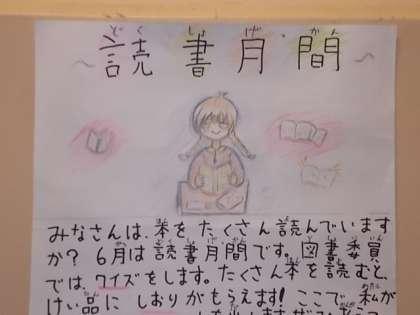 ～読書月間～
みなさんは、本をたくさん読んでいます
か？6月は読書月間です。図書委員
では、クイズをします。たくさん本を読むと、
けい品にしおりがもらえます！ここで、私が